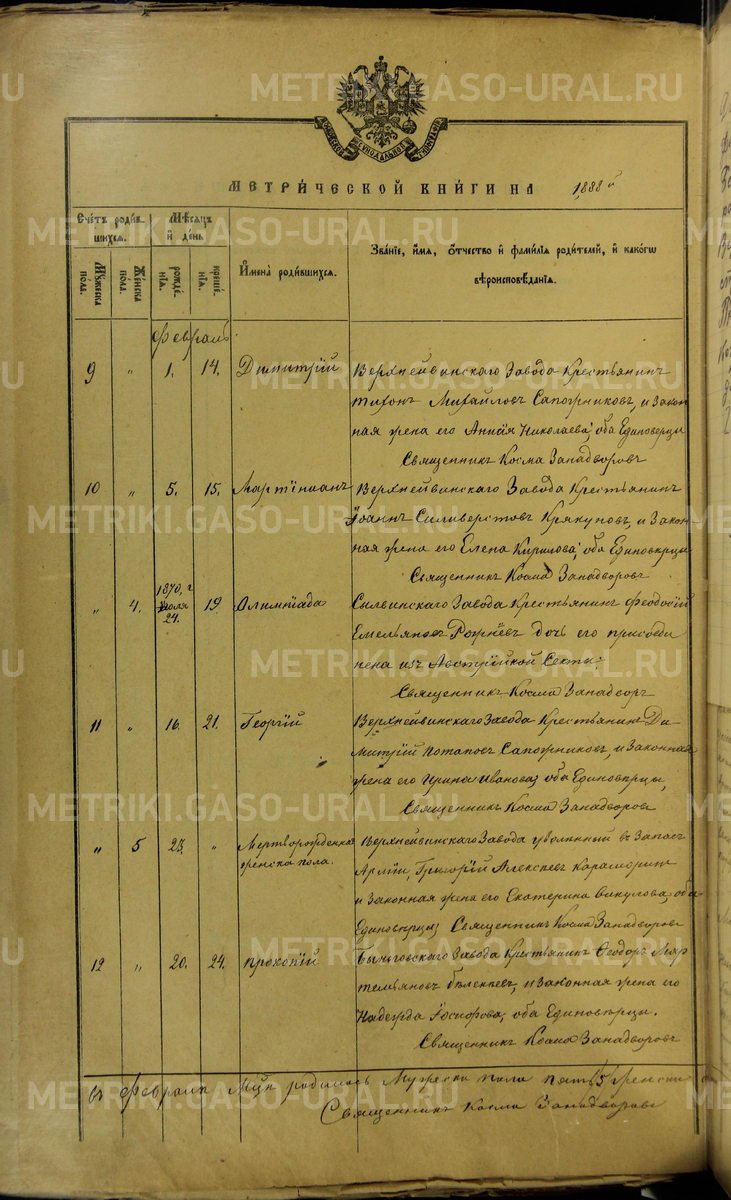 МЕТРИ́ЧЕСКОЙ КНИ́ГИ НА 1888й
Счетъ роди́вшихся.
Мѣсяцъ и день
Имена̀ роди́вшихся.
Зва́ніе, и́мя, о́тчество и фами́лія роди́телей, и како́гѡ вѣроисповѣ́данія.
Мꙋжеска пола.
Же́нска по́ла.
рожде́нія.
креще́нія.
Февраль
9 „ 1. 14. Димитрій Верхнейвинскаго Завода Крестьянинъ
Тихонъ Михайловъ Сапожниковъ, и Закон
ная жена его Анна Николаева; оба Единоверцы
Священникъ Косма Западворовъ
10 „ 5. 15. Мартиніанъ Верхнейвинскаго Завода Крестьянинъ
Іоаннъ Силиверстовъ Крякуновъ, и Закон-
ная жена его Елена Кирилова; оба Единовѣрцы
Священникъ Косма Западворовъ
„ 4. 1870, г Іюля 24. 19 Олимпіада Сылвинскаго Завода Крестьянинъ Феодосій
Емельяновъ дочь его присоеди
нена изъ Австрійкой Секты.
Священникъ Косма Западвор
11 „ 16. 21. Георгій Верхнейвинскаго Завода Крестьянинъ Ди-
митрій Потаповъ Сапожниковъ, и Законная
жена его Ирина Иванова; оба Единовѣрцы,
Священникъ Косма Западворовъ
„ 5 23. „ Мертворожденная
женска пола. Верхнейвинскаго Завода уволинный въ Запасъ
Арміи, Григорій Алексеев
и Законная жена его Екатерина Викулова; оба
Единовѣрцы Священникъ Косма Западворовъ
12 „ 20. 24. Прокопій Быньговскаго Завода Крестьянинъ Ѳеодоръ Мар
темьяновъ, и законная жена его
Надежда Іосифова; оба Единовѣрцы.
Священникъ Косма Западворовъ
Въ Февралѣ Мцѣ родилось Мужеска пола пять 5 женска
Священникъ Косма Западворовъ
METRIKI.GASO-URAL.RU